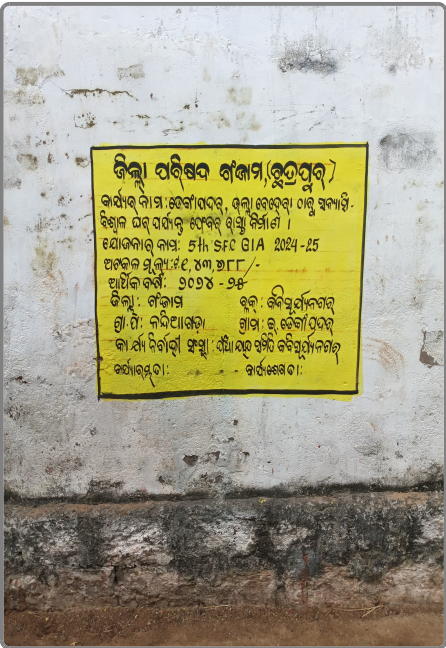 ଜିଲ୍ଲା ପରିଷଦ ଗଂଜାମ,(ଛତ୍ରପୁର)
କାର୍ଯ୍ୟର ନାମ: ଡେଙ୍ଗାପଦର, ଠାରୁ
ଘର ପର୍ଯ୍ୟନ୍ତ ପେଭର ରାସ୍ତା ନିର୍ମାଣ ।
ଯୋଜନାର ନାମ: 5th SFC GIA 2024-25
ଅଟକଳ ମୂଲ୍ୟ:₹ ୧,୪୩,୭୮୮/-
ଆର୍ଥିକ ବର୍ଷ: ୨୦୨୪ - ୨୫
ଜିଲ୍ଲା: ଗଂଜାମ ବ୍ଲକ: କବିସୂର୍ଯ୍ୟନଗର
ଗ୍ରା.ପଂ: ନନ୍ଦିଆଗଡ଼ା ଗ୍ରାମ: ଡେଙ୍ଗାପଦର
କାର୍ଯ୍ୟ ନିର୍ବାହୀ ସଂସ୍ଥା: ପଞ୍ଚାୟତ ସମିତି କବିସୂର୍ଯ୍ୟନଗର
କାର୍ଯ୍ୟାରମ୍ଭ ତା: - କାର୍ଯ୍ୟଶେଷ ତା: